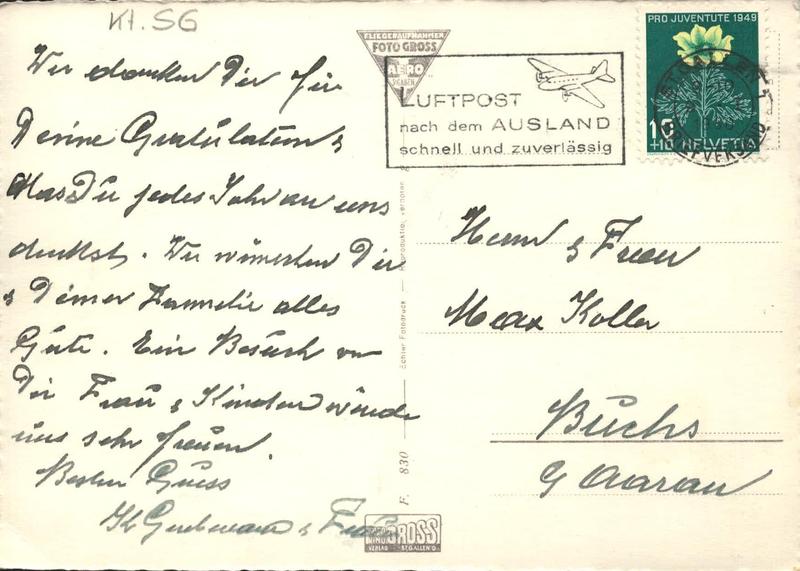 Kt. SG
Wir danken Dir für
Deine Gratulation &
das Du jedes Jahr an uns
denkst. Wir wünschen Dir
& Deiner Familie alles
Gute. Ein Besuch von
Dir Frau & Kinder würde
uns sehr freuen.
Besten Gruss
& Frau
FLIEGERAUFNAHMEN
FOTO GROSS
AERO
ST.GALLEN
LUFTPOST
nach dem AUSLAND
schnell und zuverlässig
PRO JUVENTUTE 1949
10
+10 HELVETIA
ST.GALLEN 1
BRIEFVERSAND
Herrn & Frau
Max Koller
Buchs
b/ Aarau
F. 830 Echter Fotodruck — Reproduktion verboten
GROSS
VERLAG ST.GALLEN O